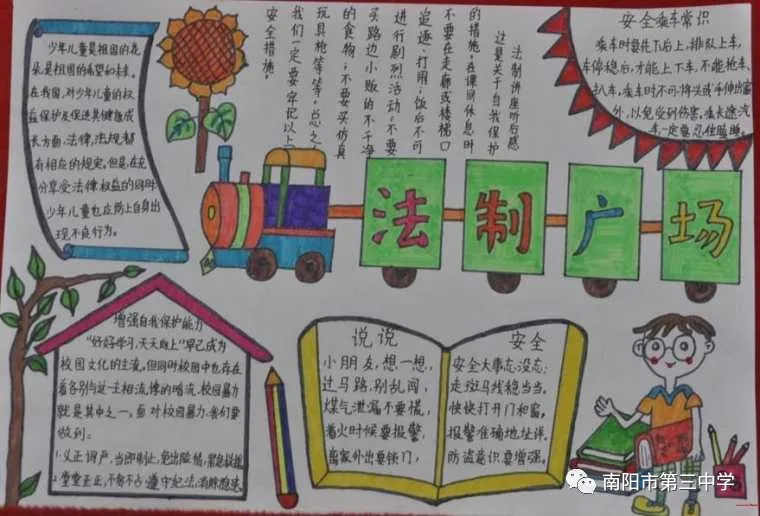 少年儿童是祖国的花
朵是祖国的希望和未来。
在我国,对少年儿童的权
益保护及促进其健康成
长方面,法律,法规都
有相应的规定。但是在充
分享受法律权益的同时
少年儿童也应防止自身出
现不良行为。
法制讲座听后感
这是关于自我保护
的措施,在课间休息时
不要在走廊或楼梯口
追逐、打闹;饭后不可
进行剧烈活动;不要
买路边小贩的不干净
的食物;不要买仿真
玩具枪等等,总之,
我们一定要牢记以上
安全措施。
安全乘车常识
乘车时要先下后上,排队上车,
车停稳后,才能上下车,不能抢车、
扒车,乘车时不可将头或手伸出窗
外,以免受到伤害。在长途汽
车一定要忍住瞌睡。
法制广场
增强自我保护能力
“好好学习,天天向上”早已成为
校园文化的主流,但同时校园中也存在
着各别与这一主相流,悖的暗流。校园暴力
就是其中之一。面对校园暴力,我们要
做到。
1.义正词严,当即制止,
2.堂堂正正,不 遵守纪法,
说说 安全
小朋友,想一想,
过马路,别乱闯,
煤气泄漏不要慌,
着火时候要报警,
离家外出要锁门,
安全大事忘没忘:
走斑马线稳当当。
快快打开门和窗,
报警准确地址详。
防盗意识要增强。
南阳市第三中学